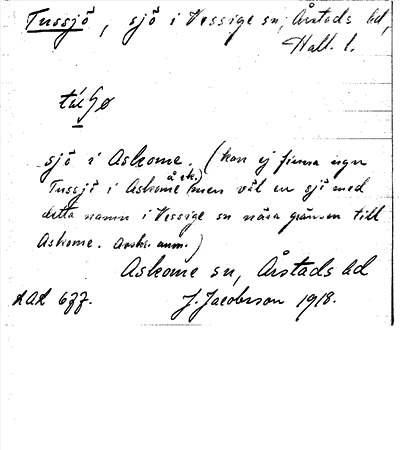 Tussjö, sjö i Vessige sn, Årstads hd,
Hall. l.
sjö i Askome. (kan ej finna ngn
Tussjö i Askome å ek. men väl en sjö med
detta namn i Vessige sn nära gränsen till
Askome. Avskr. anm.)
Askome sn, Årstads hd
J. Jacobsson 1918.